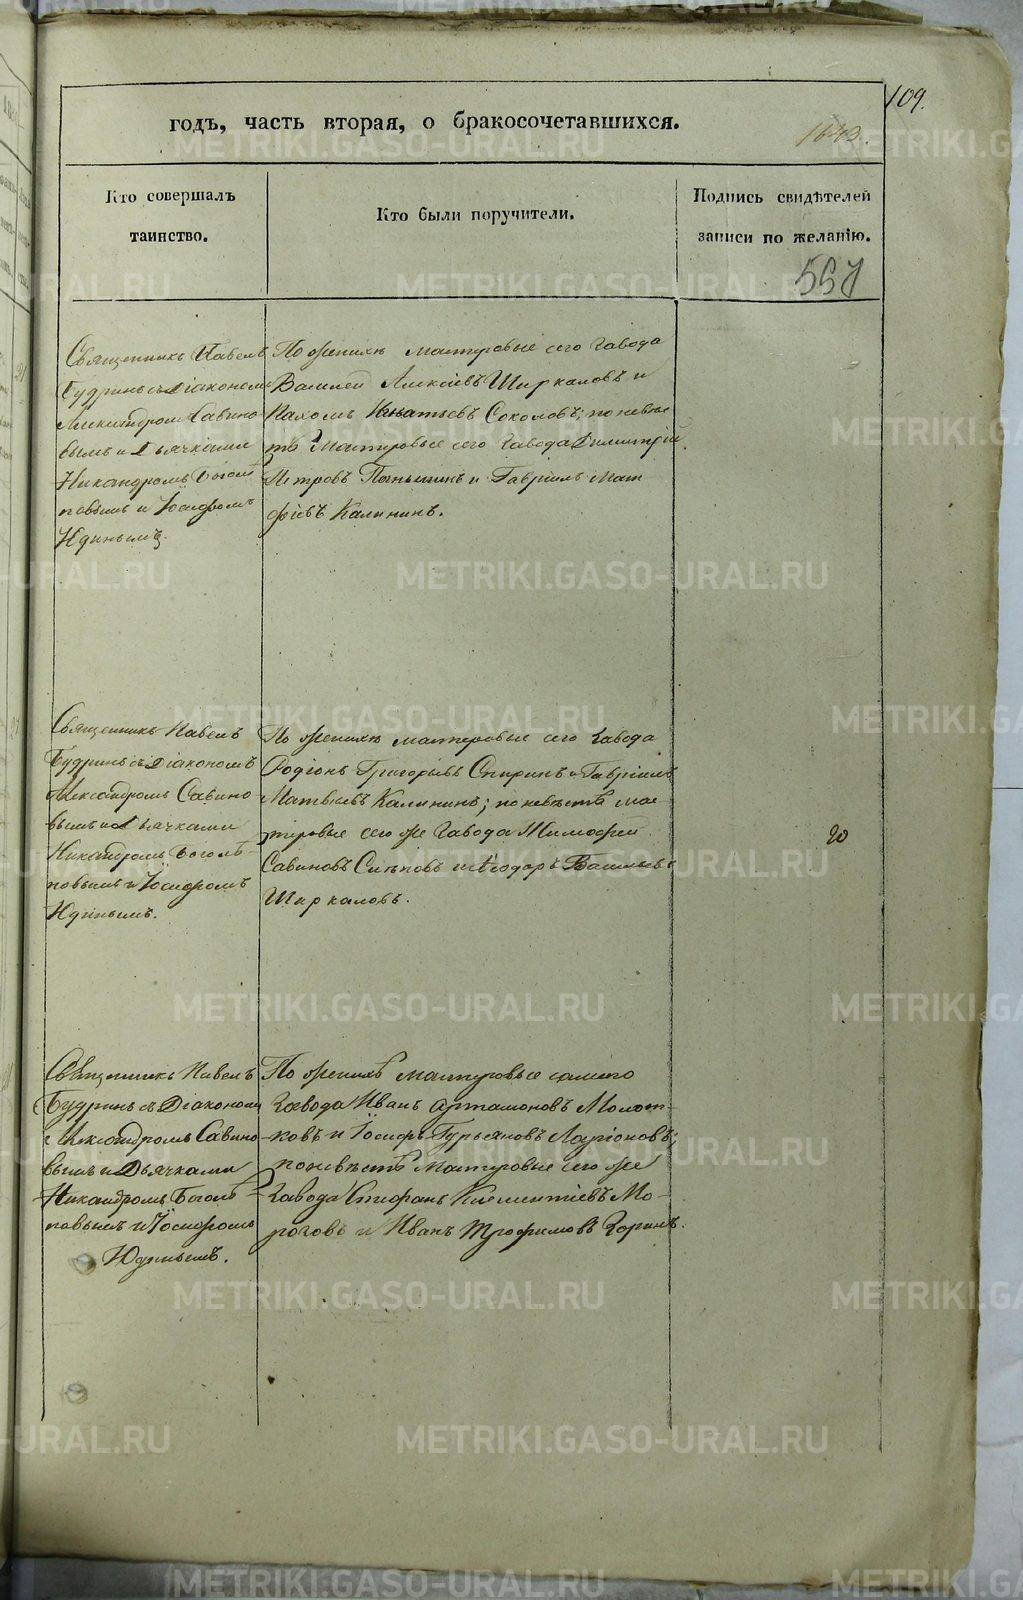 109.
годъ, часть вторая, о бракосочетавшихся.
1643.
Кто совершалъ
таинство.
Кто были поручители.
Подпись свидѣтелей
записи по желанію.
557
Священникъ Павелъ
Будринъ съ Діакономъ
Александромъ Савино
вымъ и Дьячками
Никандромъ Боголѣ
повымъ и Іосифомъ
Юдинымъ.
По женихѣ мастеровые сего Завода
Василей Алексѣевъ Ширкаловъ и
Пахомъ Игнатьевъ Соколовъ; по невѣс
тѣ Мастеровые сего Завода Димитрій
Петровъ Паньшинъ и Гавріилъ Мат
фіевъ Калининъ.
Священникъ Павелъ
Будринъ съ Діакономъ
Александромъ Савино
вымъ и Дьячками
Никандромъ Боголѣ
повымъ и Іосифомъ
Юдинымъ.
По женихѣ мастеровые сего Завода
Родіонъ Григорьевъ Спиринъ и Гавріилъ
Матвѣевъ Калининъ; по невѣстѣ мас
теровые сего же Завода Тимофей
Савиновъ и Ѳеодоръ Васильевъ
Ширкаловъ.
20
Священникъ Павелъ
Будринъ съ Діакономъ
Александромъ Савино
вымъ и Дьячками
Никандромъ Боголѣ
повымъ и Іосифомъ
Юдинымъ.
По женихѣ мастеровые сего
Завода Иванъ Артамоновъ Молот-
ковъ и Іосифъ Гурьяновъ Ларіоновъ;
по невѣстѣ Мастеровые сего же
Завода Стефанъ Клементіевъ Мо-
роговъ и Иванъ Трофимовъ Зоринъ.
METRIKI.GASO-URAL.RU